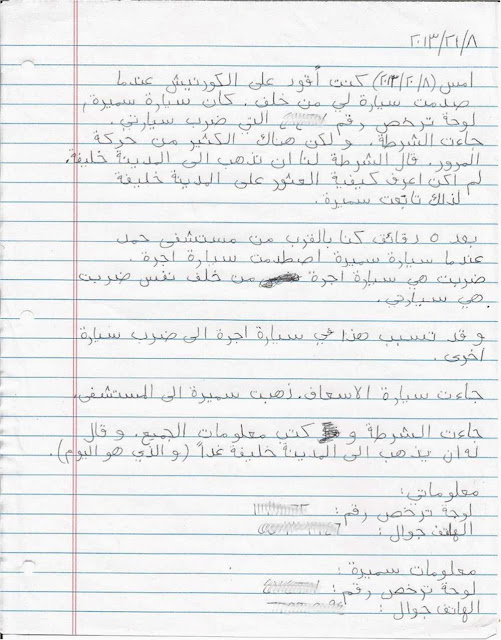 ٢٠١٣/٢١/٨
امس (٢٠١٣/٢٠/٨) كنت أقود على الكورنيش عندما
صدمت سيارة لي من خلف. كان سيارة سميرة,
لوحة ترخص رقم التي ضرب سيارتي.
جاءت الشرطة. و لكن هناك الكثير من حركة
المرور. قال الشرطة لنا ان تذهب الى المدينة خليفة.
لم اكن اعرف كيفية العثور على المدينة خليفة
لذلك تابعت سميرة.
بعد ٥ دقائق كنا بالقرب من مستشفى حمد
عندما سيارة سميرة اصطدمت سيارة اجرة.
ضربت هي سيارة اجرة من خلف نفس ضربت
هي سيارتي.
و قد تسبب هذا في سيارة اجرة الى ضرب سيارة
اخرى.
جاءت سيارة الاسعاف. ذهبت سميرة الى المستشفى.
جاءت الشرطة و كتب معلومات الجميع. و قال
له ان يذهب الى المدينة خليفة غداً (و الذي هو اليوم).
معلوماتي:
لوحة ترخص رقم:
الهاتف جوال:
معلومات سميرة:
لوحة ترخص رقم:
الهاتف جوال: